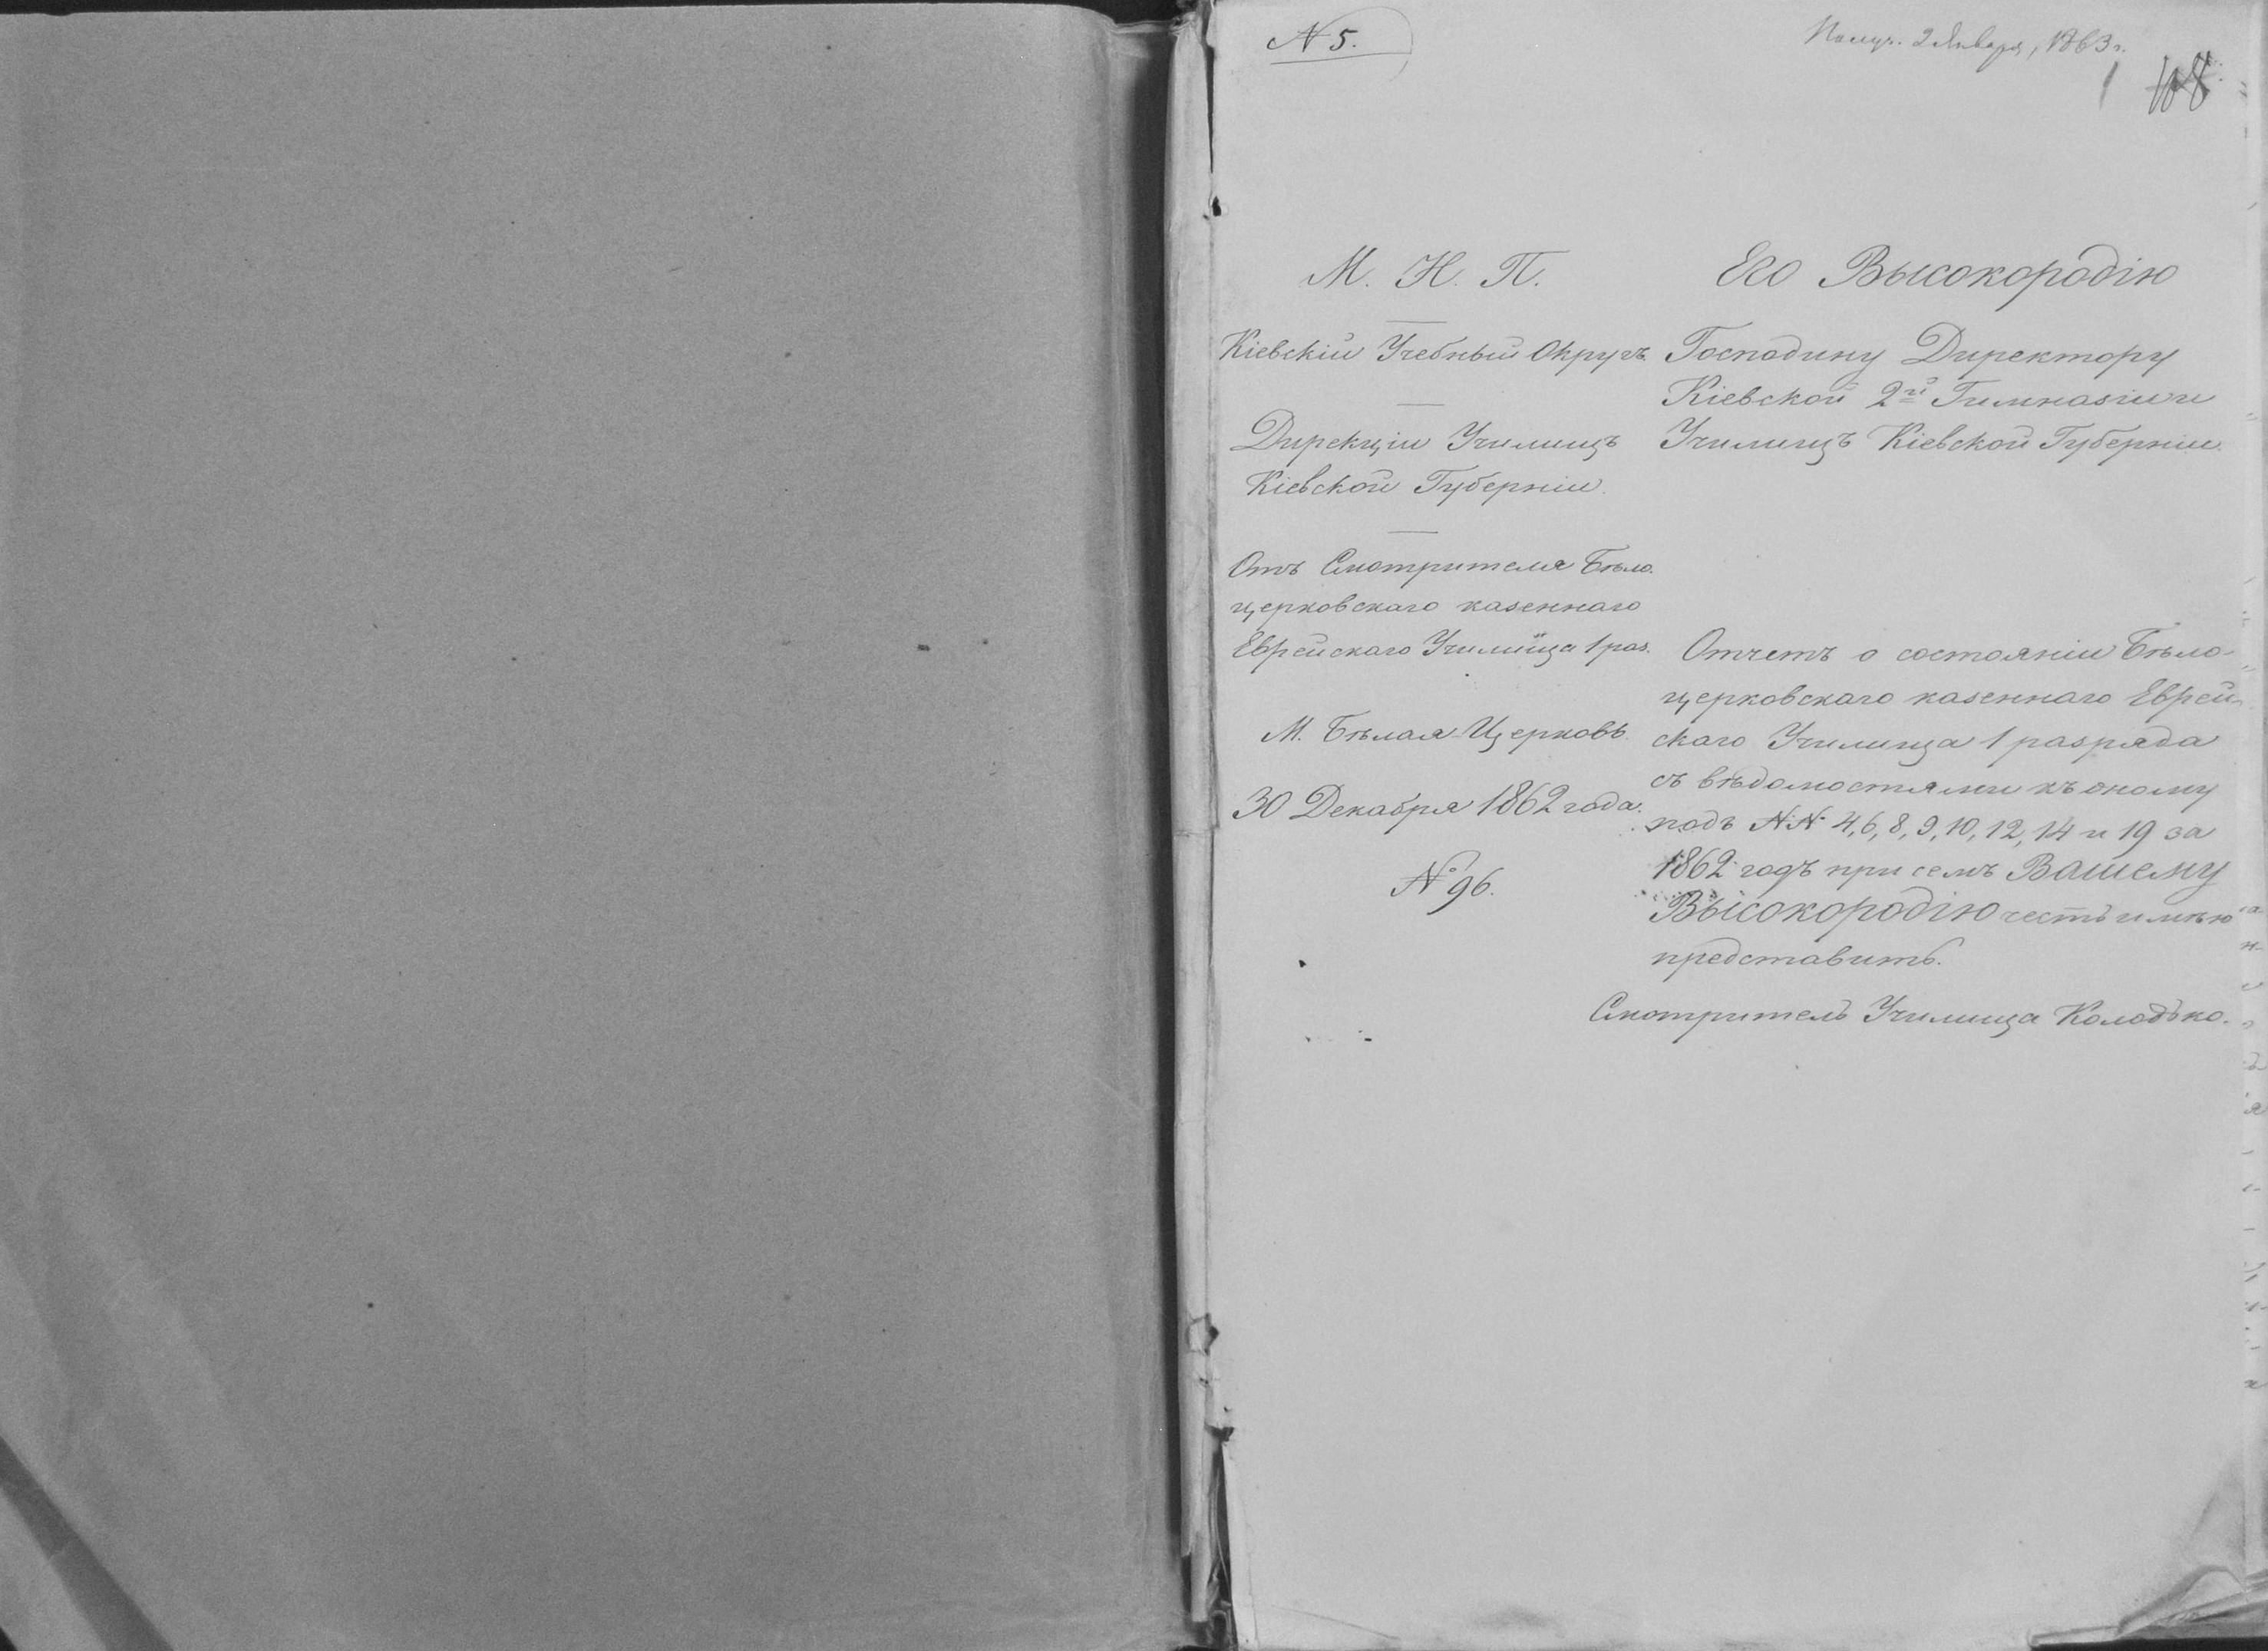 N 5.
Получ. 2 Января, 1863 г.
1 108
М. Н. П.
Кіевскій Учебный Округъ
Дирекціи Училищъ
Кіевской Губерніи.
Отъ Смотрителя Бѣло-
церковскаго казеннаго
Еврейскаго Училища 1 раз.
М. Бѣлая-Церковь.
30 Декабря 1862 года.
№ 96.
Его Высокородію
Господину Директору
Кіевской 2й Гимназіи и
Училищъ Кіевской Губерніи.
Отчетъ о состояніи Бѣло-
церковскаго казеннаго Еврей-
скаго Училища 1 разряда
съ вѣдомостями къ оному
подъ NN 4, 6, 8, 9, 10, 12, 14 и 19 за
1862 годъ при семъ Вашему
Высокородію честь имѣю
представить.
Смотритель Училища